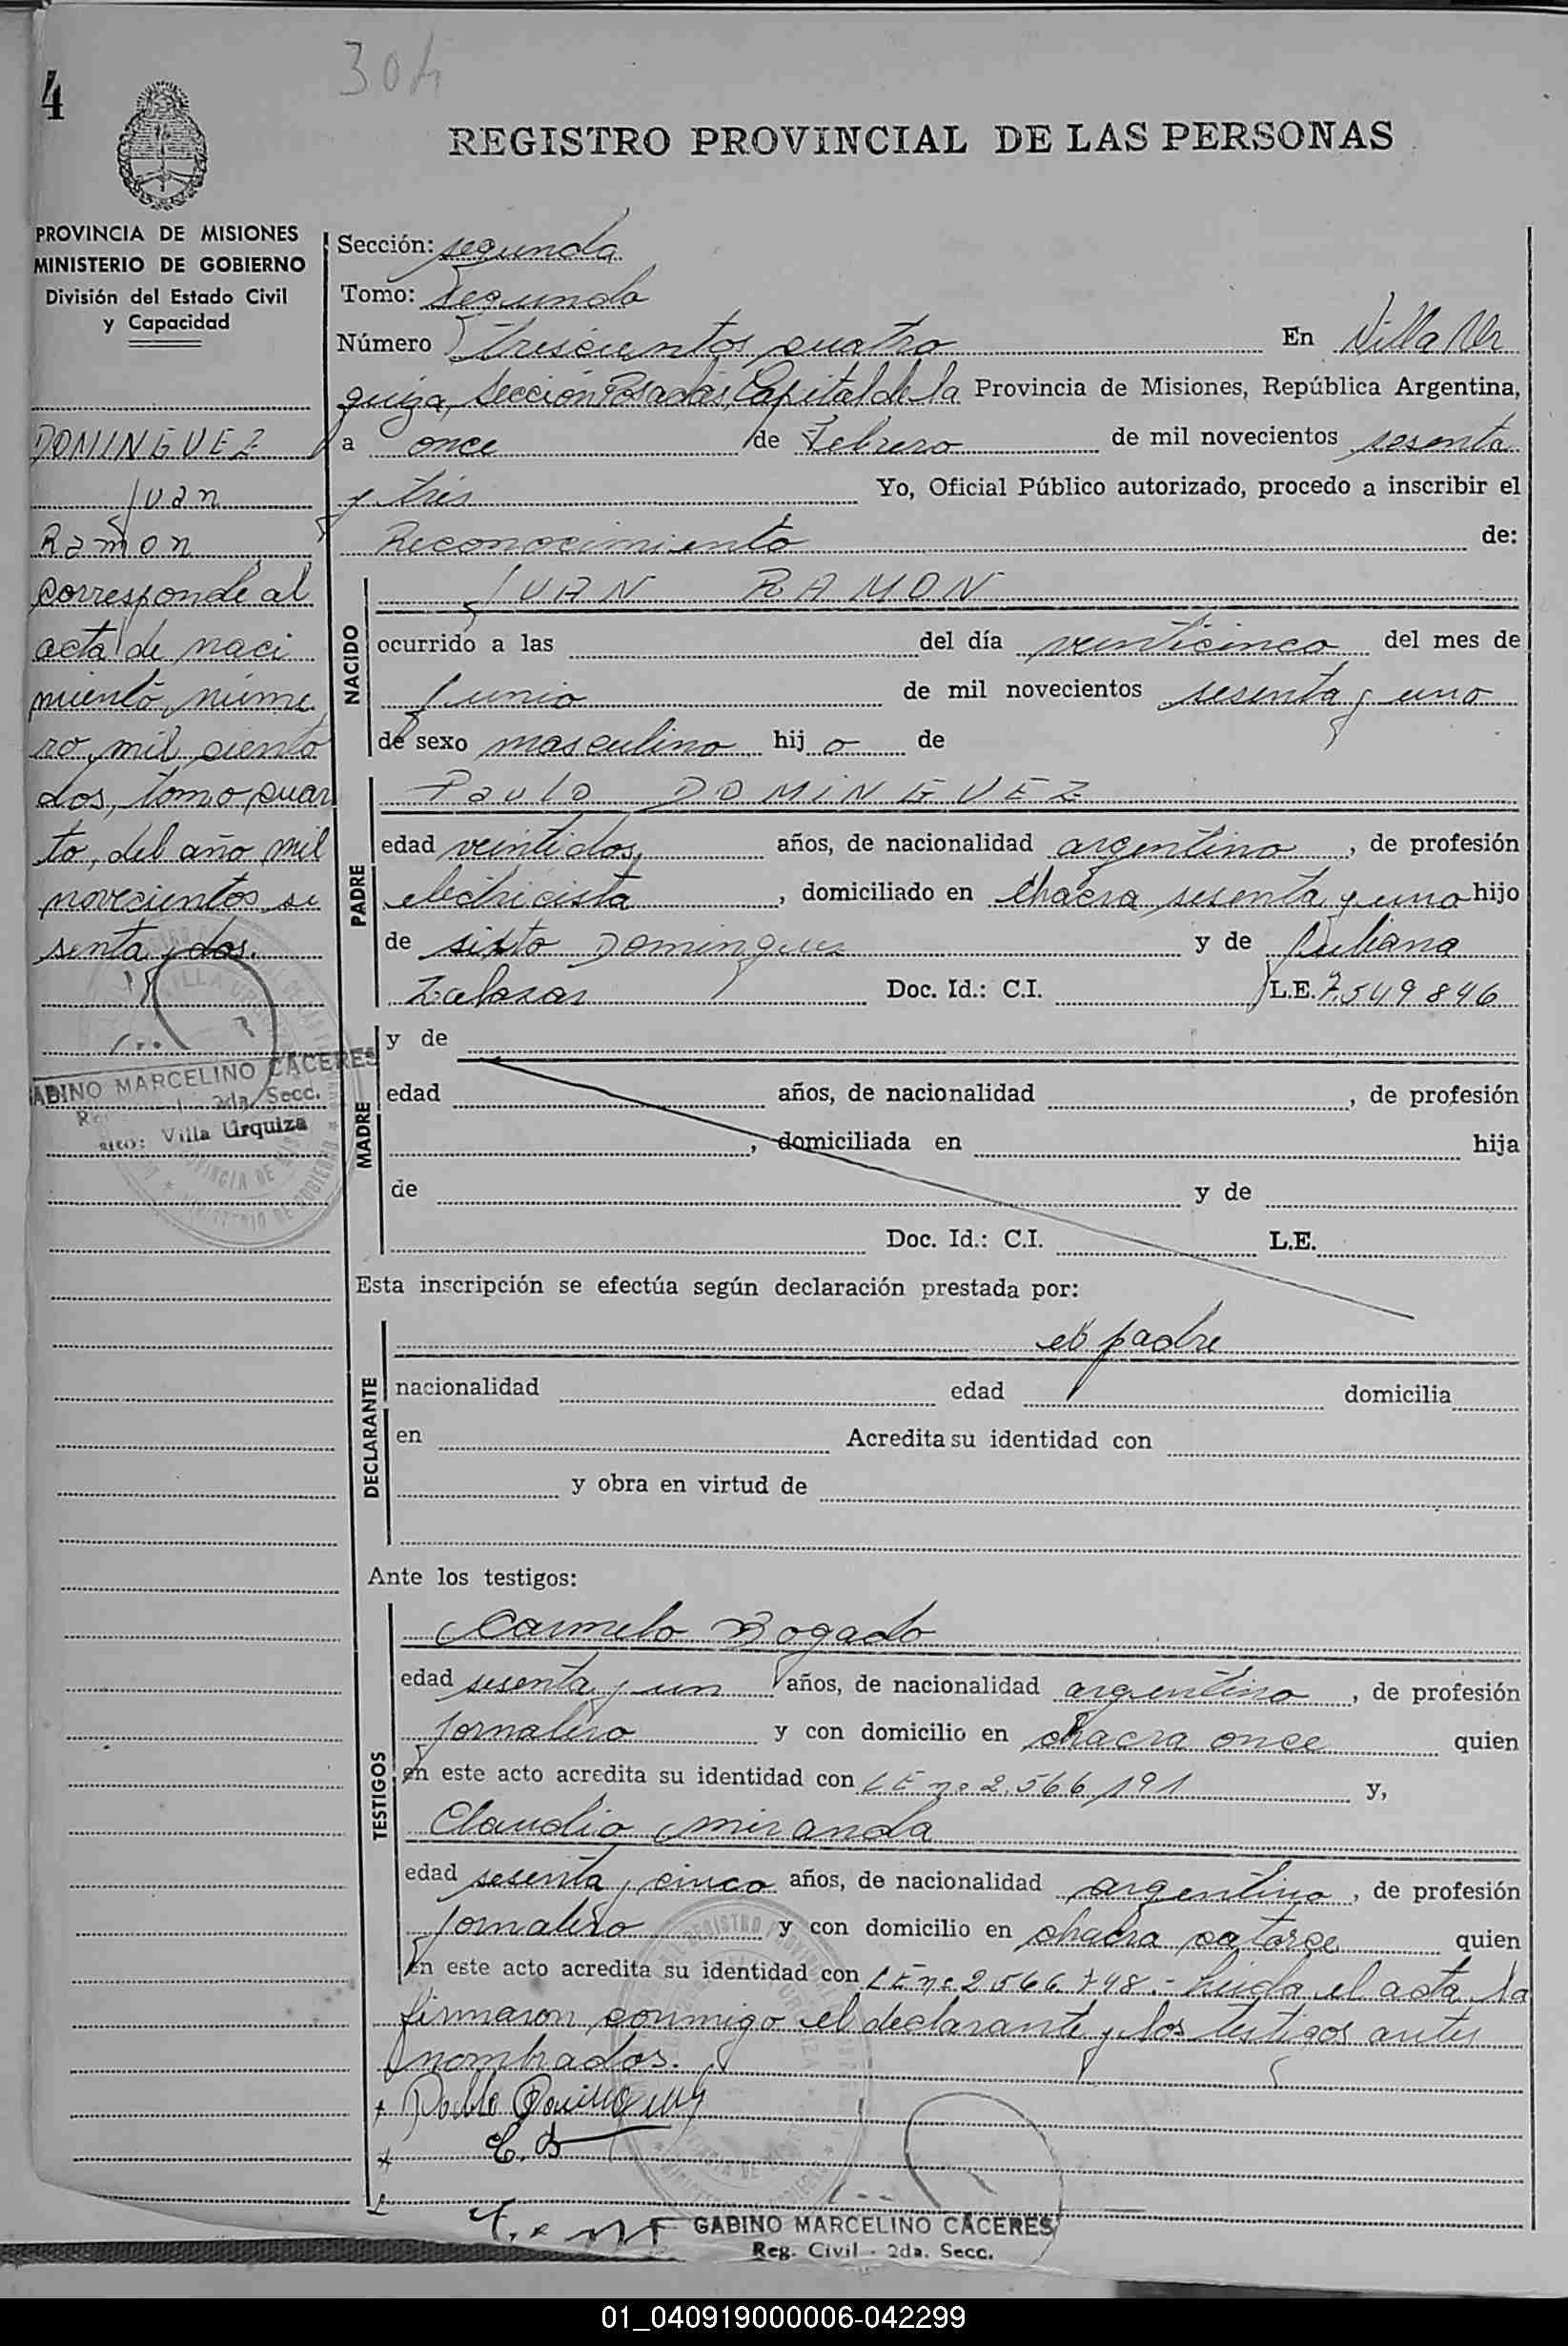 304
4
REGISTRO PROVINCIAL DE LAS PERSONAS
PROVINCIA DE MISIONES
MINISTERIO DE GOBIERNO
División del Estado Civil
y Capacidad
DOMINGUEZ
Juan
Ramon
corresponde al
acta de naci
miento, núme
ro mil ciento
dos, tomo cuar
to, del año mil
novecientos se
senta y dos.
GABINO MARCELINO CACERES
2da. Secc.
Villa Urquiza
Sección: segunda
Tomo: Segundo
Número trescientos cuatro En Villa Ur
quiza, Sección Posadas, Capital de la Provincia de Misiones, República Argentina,
a once de Febrero de mil novecientos sesenta
y tres Yo, Oficial Público autorizado, procedo a inscribir el
Reconocimiento de:
NACIDO
JUAN RAMON
ocurrido a las del día veinticinco del mes de
Junio de mil novecientos sesenta y uno
de sexo masculino hijo de
PADRE
Paulo DOMINGUEZ
edad veintidos, años, de nacionalidad argentino, de profesión
electricista, domiciliado en chacra sesenta y uno hijo
de sixto Dominguez y de Juliana
Zalazar Doc. Id.: C.I. L.E. 7.549896
MADRE
y de
edad años, de nacionalidad , de profesión
, domiciliada en hija
de y de
Doc. Id.: C.I. L.E.
Esta inscripción se efectúa según declaración prestada por:
DECLARANTE
el padre
nacionalidad edad domicilia
en Acredita su identidad con
y obra en virtud de
Ante los testigos:
TESTIGOS
Carmelo Bogado
edad sesenta y un años, de nacionalidad argentino, de profesión
Jornalero y con domicilio en chacra once quien
en este acto acredita su identidad con LE no 2.566.191 y,
Claudio Miranda
edad sesenta y cinco años, de nacionalidad argentino, de profesión
Jornalero y con domicilio en chacra catorce quien
en este acto acredita su identidad con LE no 2566.748.- Leida el acta la
firmaron conmigo el declarante y los testigos antes
nombrados.
Pablo Dominguez
C. B
GABINO MARCELINO CACERES
Reg. Civil - 2da. Secc.
01_040919000006-042299